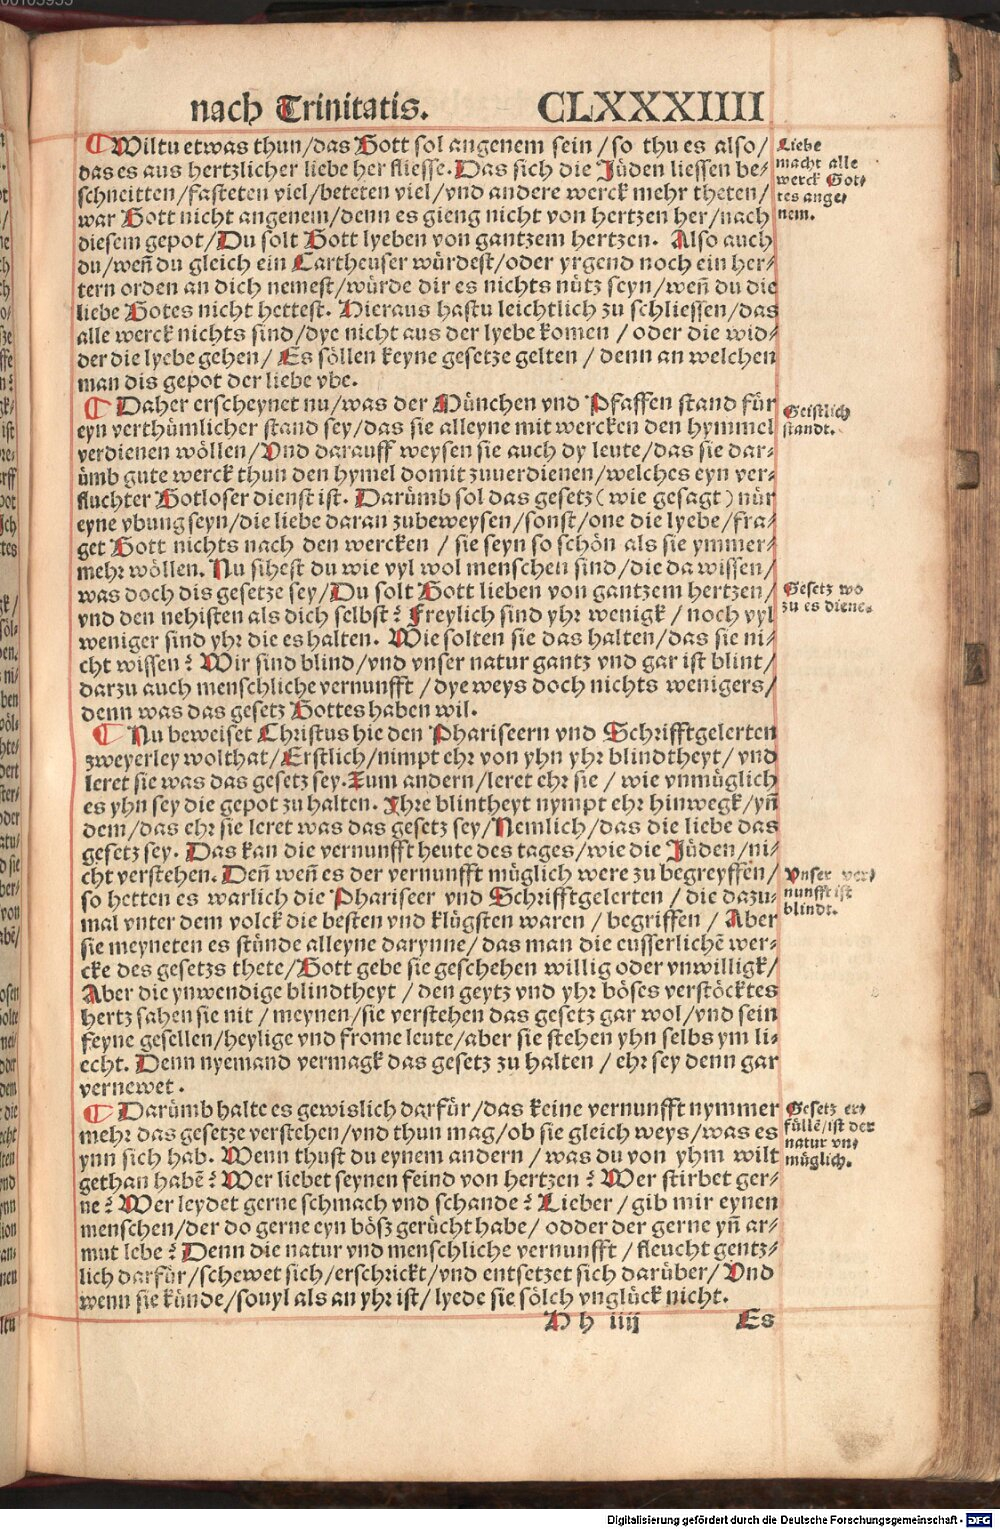 nach Trinitatis. CLXXXIIII
¶ Wiltu etwas thun/das Gott sol angenem sein/so thu es also/
das es aus hertzlicher liebe her fliesse. Das sich die Jüden liessen be⸗
schneitten/fasteten viel/beteten viel/vnd andere werck mehr theten/
war Gott nicht angenem/denn es gieng nicht von hertzen her/nach
diesem gepot/Du solt Gott lyeben von gantzem hertzen. Also auch
du/weñ du gleich ein Cartheuser würdest/oder yrgend noch ein her⸗
tern orden an dich nemest/würde dir es nichts nütz seyn/weñ du die
liebe Gotes nicht hettest. Hieraus hastu leichtlich zu schliessen/das
alle werck nichts sind/dye nicht aus der lyebe komen/oder die wid⸗
der die lyebe gehen/Es söllen keyne gesetze gelten/denn an welchen
man dis gepot der liebe vbe.
¶ Daher erscheynet nu/was der München vnd Pfaffen stand für
eyn verthümlicher stand sey/das sie alleyne mit wercken den hymmel
verdienen wöllen/Vnd darauff weysen sie auch dy leute/das sie dar⸗
ümb gute werck thun den hymel domit zuuerdienen/welches eyn ver⸗
fluchter Gotloser dienst ist. Darümb sol das gesetz (wie gesagt) nür
eyne vbung seyn/die liebe daran zubeweysen/sonst/one die lyebe/fra⸗
get Gott nichts nach den wercken/sie seyn so schön als sie ymmer⸗
mehr wöllen. Nu sihest du wie vyl wol menschen sind/die da wissen/
was doch dis gesetze sey/Du solt Gott lieben von gantzem hertzen/
vnd den nehisten als dich selbst? Freylich sind yhr wenigk/noch vyl
weniger sind yhr die es halten. Wie solten sie das halten/das sie ni⸗
cht wissen? Wir sind blind/vnd vnser natur gantz vnd gar ist blint/
darzu auch menschliche vernunfft/dye weys doch nichts wenigers/
denn was das gesetz Gottes haben wil.
¶ Nu beweiset Christus hie den Phariseern vnd Schrifftgelerten
zweyerley wolthat/Erstlich/nimpt ehr von yhn yhr blindtheyt/vnd
leret sie was das gesetz sey. Zum andern/leret ehr sie/wie vnmüglich
es yhn sey die gepot zu halten. Ihre blintheyt nympt ehr hinwegk/yñ
dem/das ehr sie leret was das gesetz sey/Nemlich/das die liebe das
gesetz sey. Das kan die vernunfft heute des tages/wie die Jüden/ni⸗
cht verstehen. Deñ weñ es der vernunfft müglich were zu begreyffen/
so hetten es warlich die Phariseer vnd Schrifftgelerten/die dazu⸗
mal vnter dem volck die besten vnd klügsten waren/begriffen/Aber
sie meyneten es stünde alleyne darynne/das man die eusserlichẽ wer⸗
cke des gesetzs thete/Gott gebe sie geschehen willig oder vnwilligk/
Aber die ynwendige blindtheyt/den geytz vnd yhr böses verstöcktes
hertz sahen sie nit/meynen/sie verstehen das gesetz gar wol/vnd sein
feyne gesellen/heylige vnd frome leute/aber sie stehen yhn selbs ym li⸗
echt. Denn nyemand vermagk das gesetz zu halten/ehr sey denn gar
vernewet.
¶ Darümb halte es gewislich darfür/das keine vernunfft nymmer
mehr das gesetze verstehen/vnd thun mag/ob sie gleich weys/was es
ynn sich hab. Wenn thust du eynem andern/was du von yhm wilt
gethan habẽ? Wer liebet seynen feind von hertzen? Wer stirbet ger⸗
ne? Wer leydet gerne schmach vnd schande? Lieber/gib mir eynen
menschen/der do gerne eyn bösz gerücht habe/odder der gerne yñ ar⸗
mut lebe? Denn die natur vnd menschliche vernunfft/fleucht gentz⸗
lich darfür/schewet sich/erschrickt/vnd entsetzet sich darüber/Vnd
wenn sie künde/souyl als an yhr ist/lyede sie sölch vnglück nicht.
H h iiij Es
Liebe
macht alle
werck Got⸗
tes ange⸗
nem.
Geistlich
standt.
Gesetz wo
zu es diene.
Vnser ver⸗
nunfft ist
blindt.
Gesetz er⸗
füllẽ/ist der
natur vn⸗
müglich.
Digitalisierung gefördert durch die Deutsche Forschungsgemeinschaft - DFG